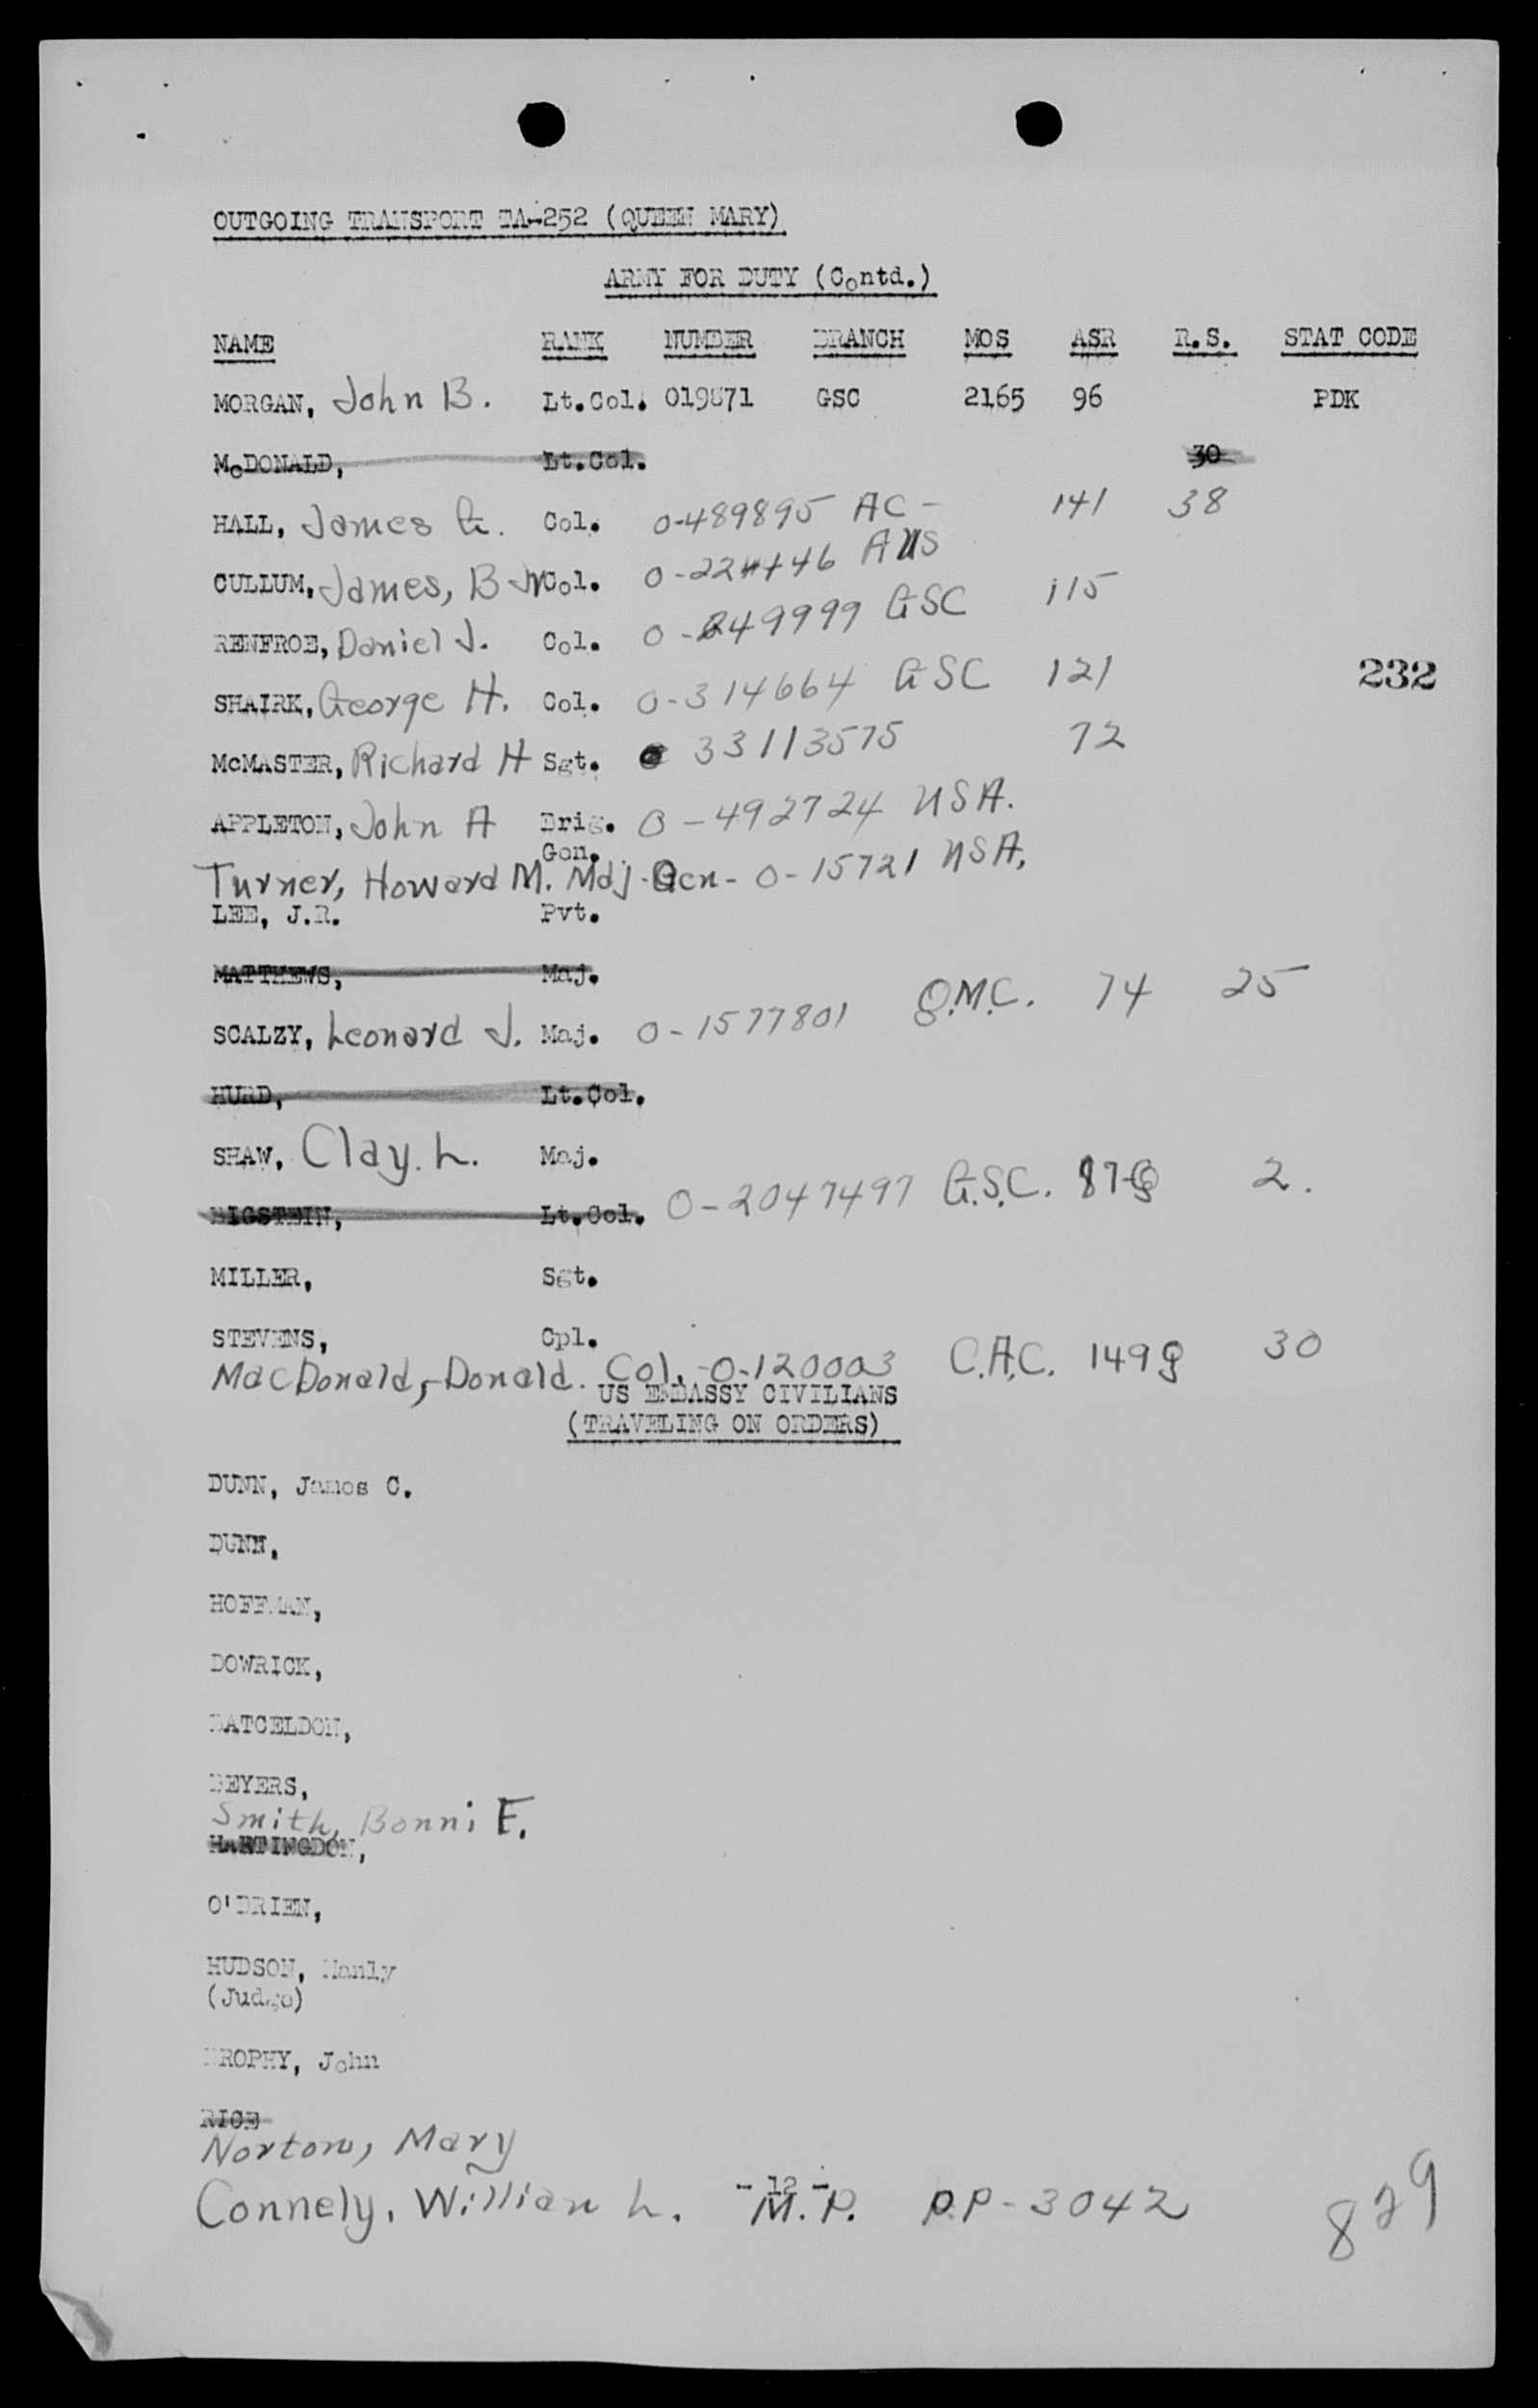 OUTGOING TRANSPORT TA-252 (QUEEN MARY)
ARMY FOR DUTY (Contd.)
NAME RANK NUMBER BRANCH MOS ASR R.S. STAT CODE
MORGAN, John B. Lt.Col. 019871 GSC 2165 96 PDK
McDONALD, Lt.Col. 30
HALL, James G. Col. O-489895 AC - 141 38
CULLUM, James, B Jr Col. AUS
RENFROE, Daniel J. Col. O-249999 GSC 115
SHAIRK, George H. Col. O-314664 GSC 121
232
McMASTER, Richard H Sgt. 33113575 72
APPLETON, John A Brig. O-492724 USA.
Gen.
Turner, Howard M. Maj-Gen- O-15721 USA,
LEE, J.R. Pvt.
MATTHEWS, Maj.
SCALZY, Leonard J. Maj. O-1577801 Q.M.C. 74 25
HURD, Lt.Col.
SHAW, Clay. L. Maj.
O-2047497 G.S.C. 87 2.
Lt.Col.
MILLER, Sgt.
STEVENS, Cpl.
MacDonald, Donald. Col. -O-120003 C.A.C. 149 30
US EMBASSY CIVILIANS
(TRAVELING ON ORDERS)
DUNN, James C.
DUNN,
HOFFMAN,
DOWRICK,
BATCELDON,
BEYERS,
Smith, Bonni E.
HARTINGDON,
O'BRIEN,
HUDSON, Manly
(Judge)
BROPHY, John
RICE
Norton, Mary
-12-
Connely, William L. M.P. P.P-3042
829